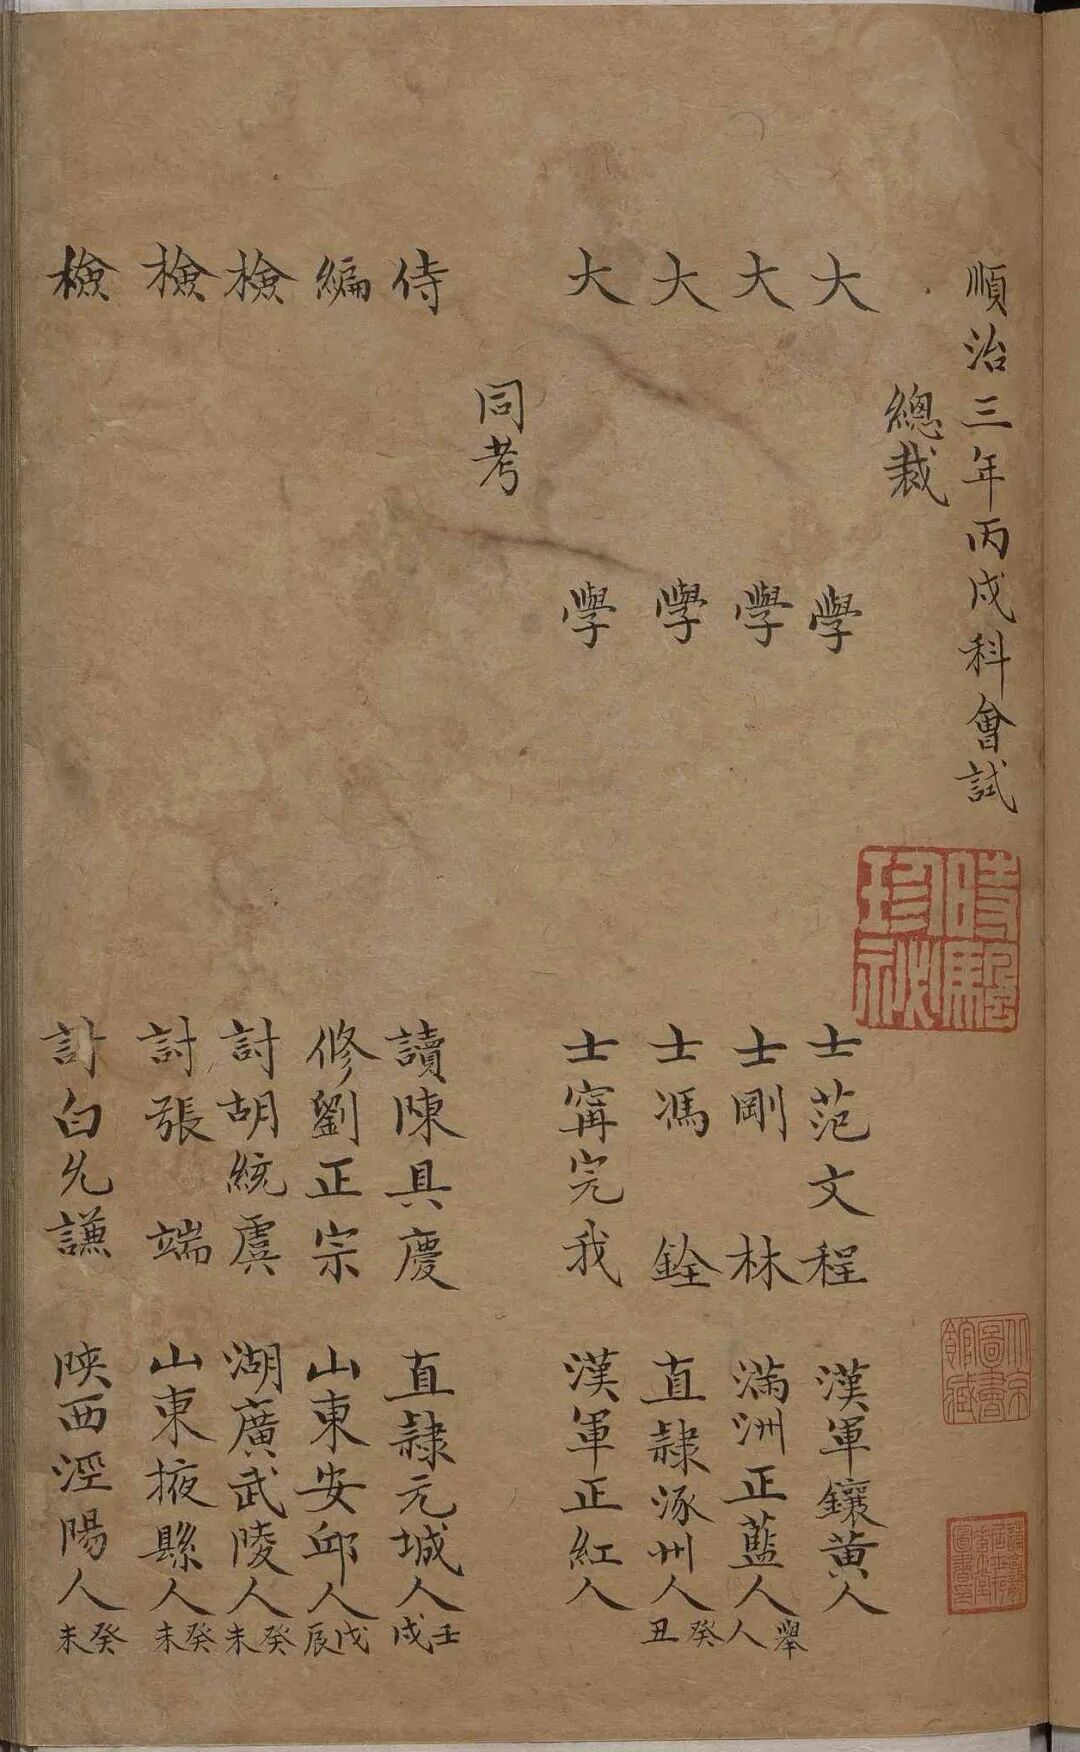 順治三年丙戌科會試
總裁
大學士范文程 漢軍鑲黃人
大學士剛林 滿洲正藍人 舉人
大學士馮銓 直隸涿州人 癸丑
大學士甯完我 漢軍正紅人
同考
侍讀陳具慶 直隸元城人 壬戌
編修劉正宗 山東安邱人 戊辰
檢討胡統虞 湖廣武陵人 癸未
檢討張端 山東掖縣人 癸未
檢討白允謙 陝西涇陽人 癸未
詩龕書
北京圖書館藏